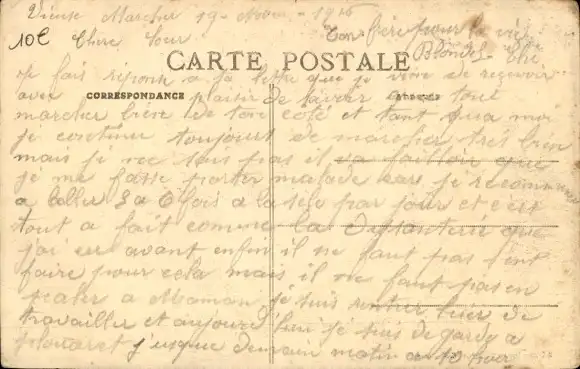 Vieux Marcher 19 Nov 1916
10€ Chere Seur Ton frère pour la vie
Blondel
CARTE POSTALE
Je fais réponse a ta lettre que je viens de recevoir
CORRESPONDANCE
avec plaisir de savoir tout
marcher bien de ton coté et tant qua moi
je continue toujours de marcher très bien
mais je ne sais pas il va falloir que
je me fasse porter malade car je recommence
a aller 5 a 6 fois a la par jour et c'est
tout a fait comme la que
j'ai eu avant enfin il ne faut pas s'en
faire pour cela mais il ne faut pas en
parler a Maman je suis rentrer hier de
travailler et aujourd'hui je suis de garde a
Plouaret jusque demain matin a 10 heur